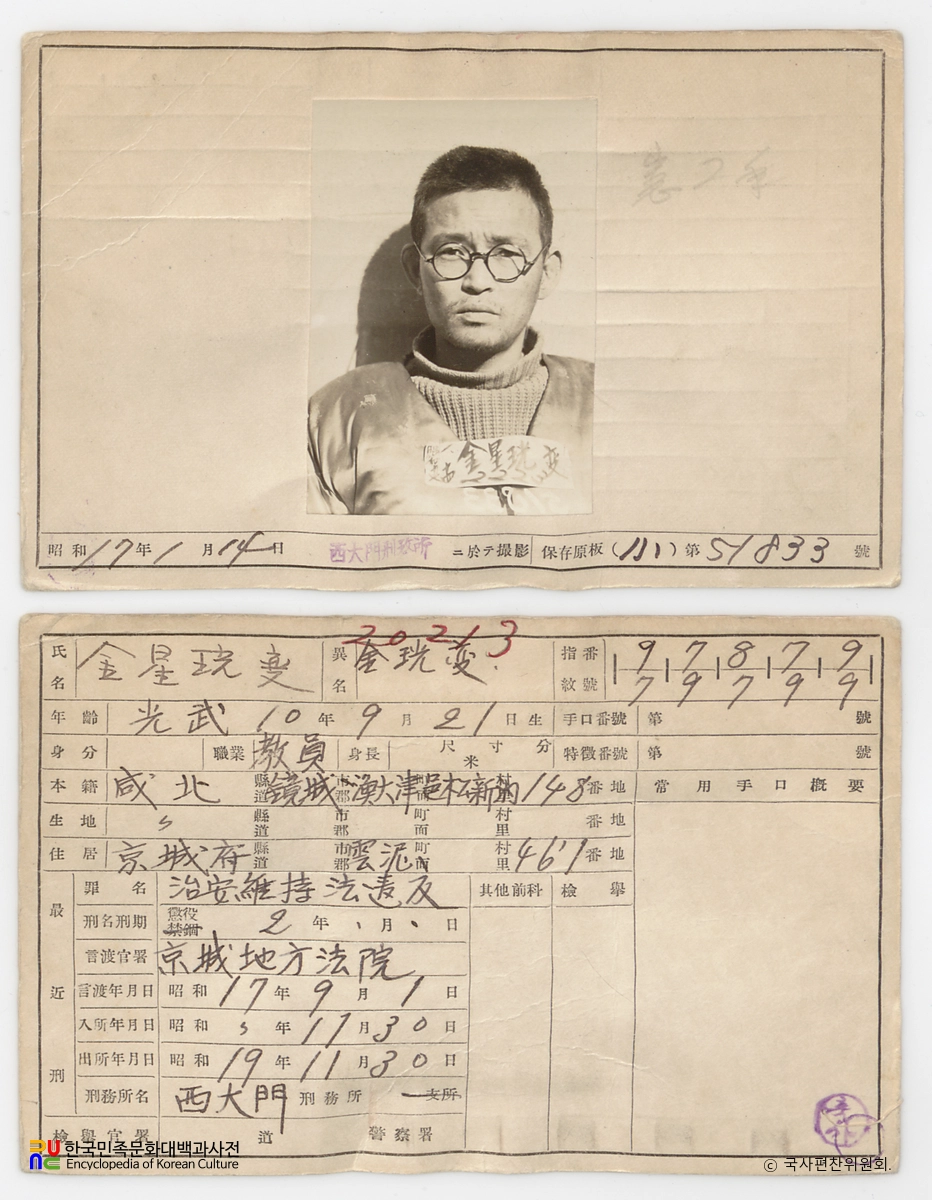 金星珖変
昭和17年1月14日 西大門刑務所 ニ於テ撮影 保存原板 第51833號
20213
氏名 金星珖變 異名 金珖變 指紋番號 9 7 8 7 9
7 9 7 9 9
年齡 光武10年9月21日生 手口番號 第 號
身分 職業 教員 身長 尺寸分 米 特徵番號 第 號
本籍 咸北 縣道 鏡城 市郡 漁大津邑 町面 村里 148番地 常用手口槪要
生地 〃 縣道 市郡 町面 村里 番地
住居 京城府 縣道 市郡 雲泥 町面 村里 461番地
最近刑
罪名 治安維持法違反 其他前科 檢擧
刑名刑期 懲役 禁錮 2年、月、日
言渡官署 京城地方法院
言渡年月日 昭和17年9月1日
入所年月日 昭和〃年11月30日
出所年月日 昭和19年11月30日
刑務所名 西大門刑務所 支所
檢擧官署 道 警察署
한국민족문화대백과사전
Encyclopedia of Korean Culture
© 국사편찬위원회.